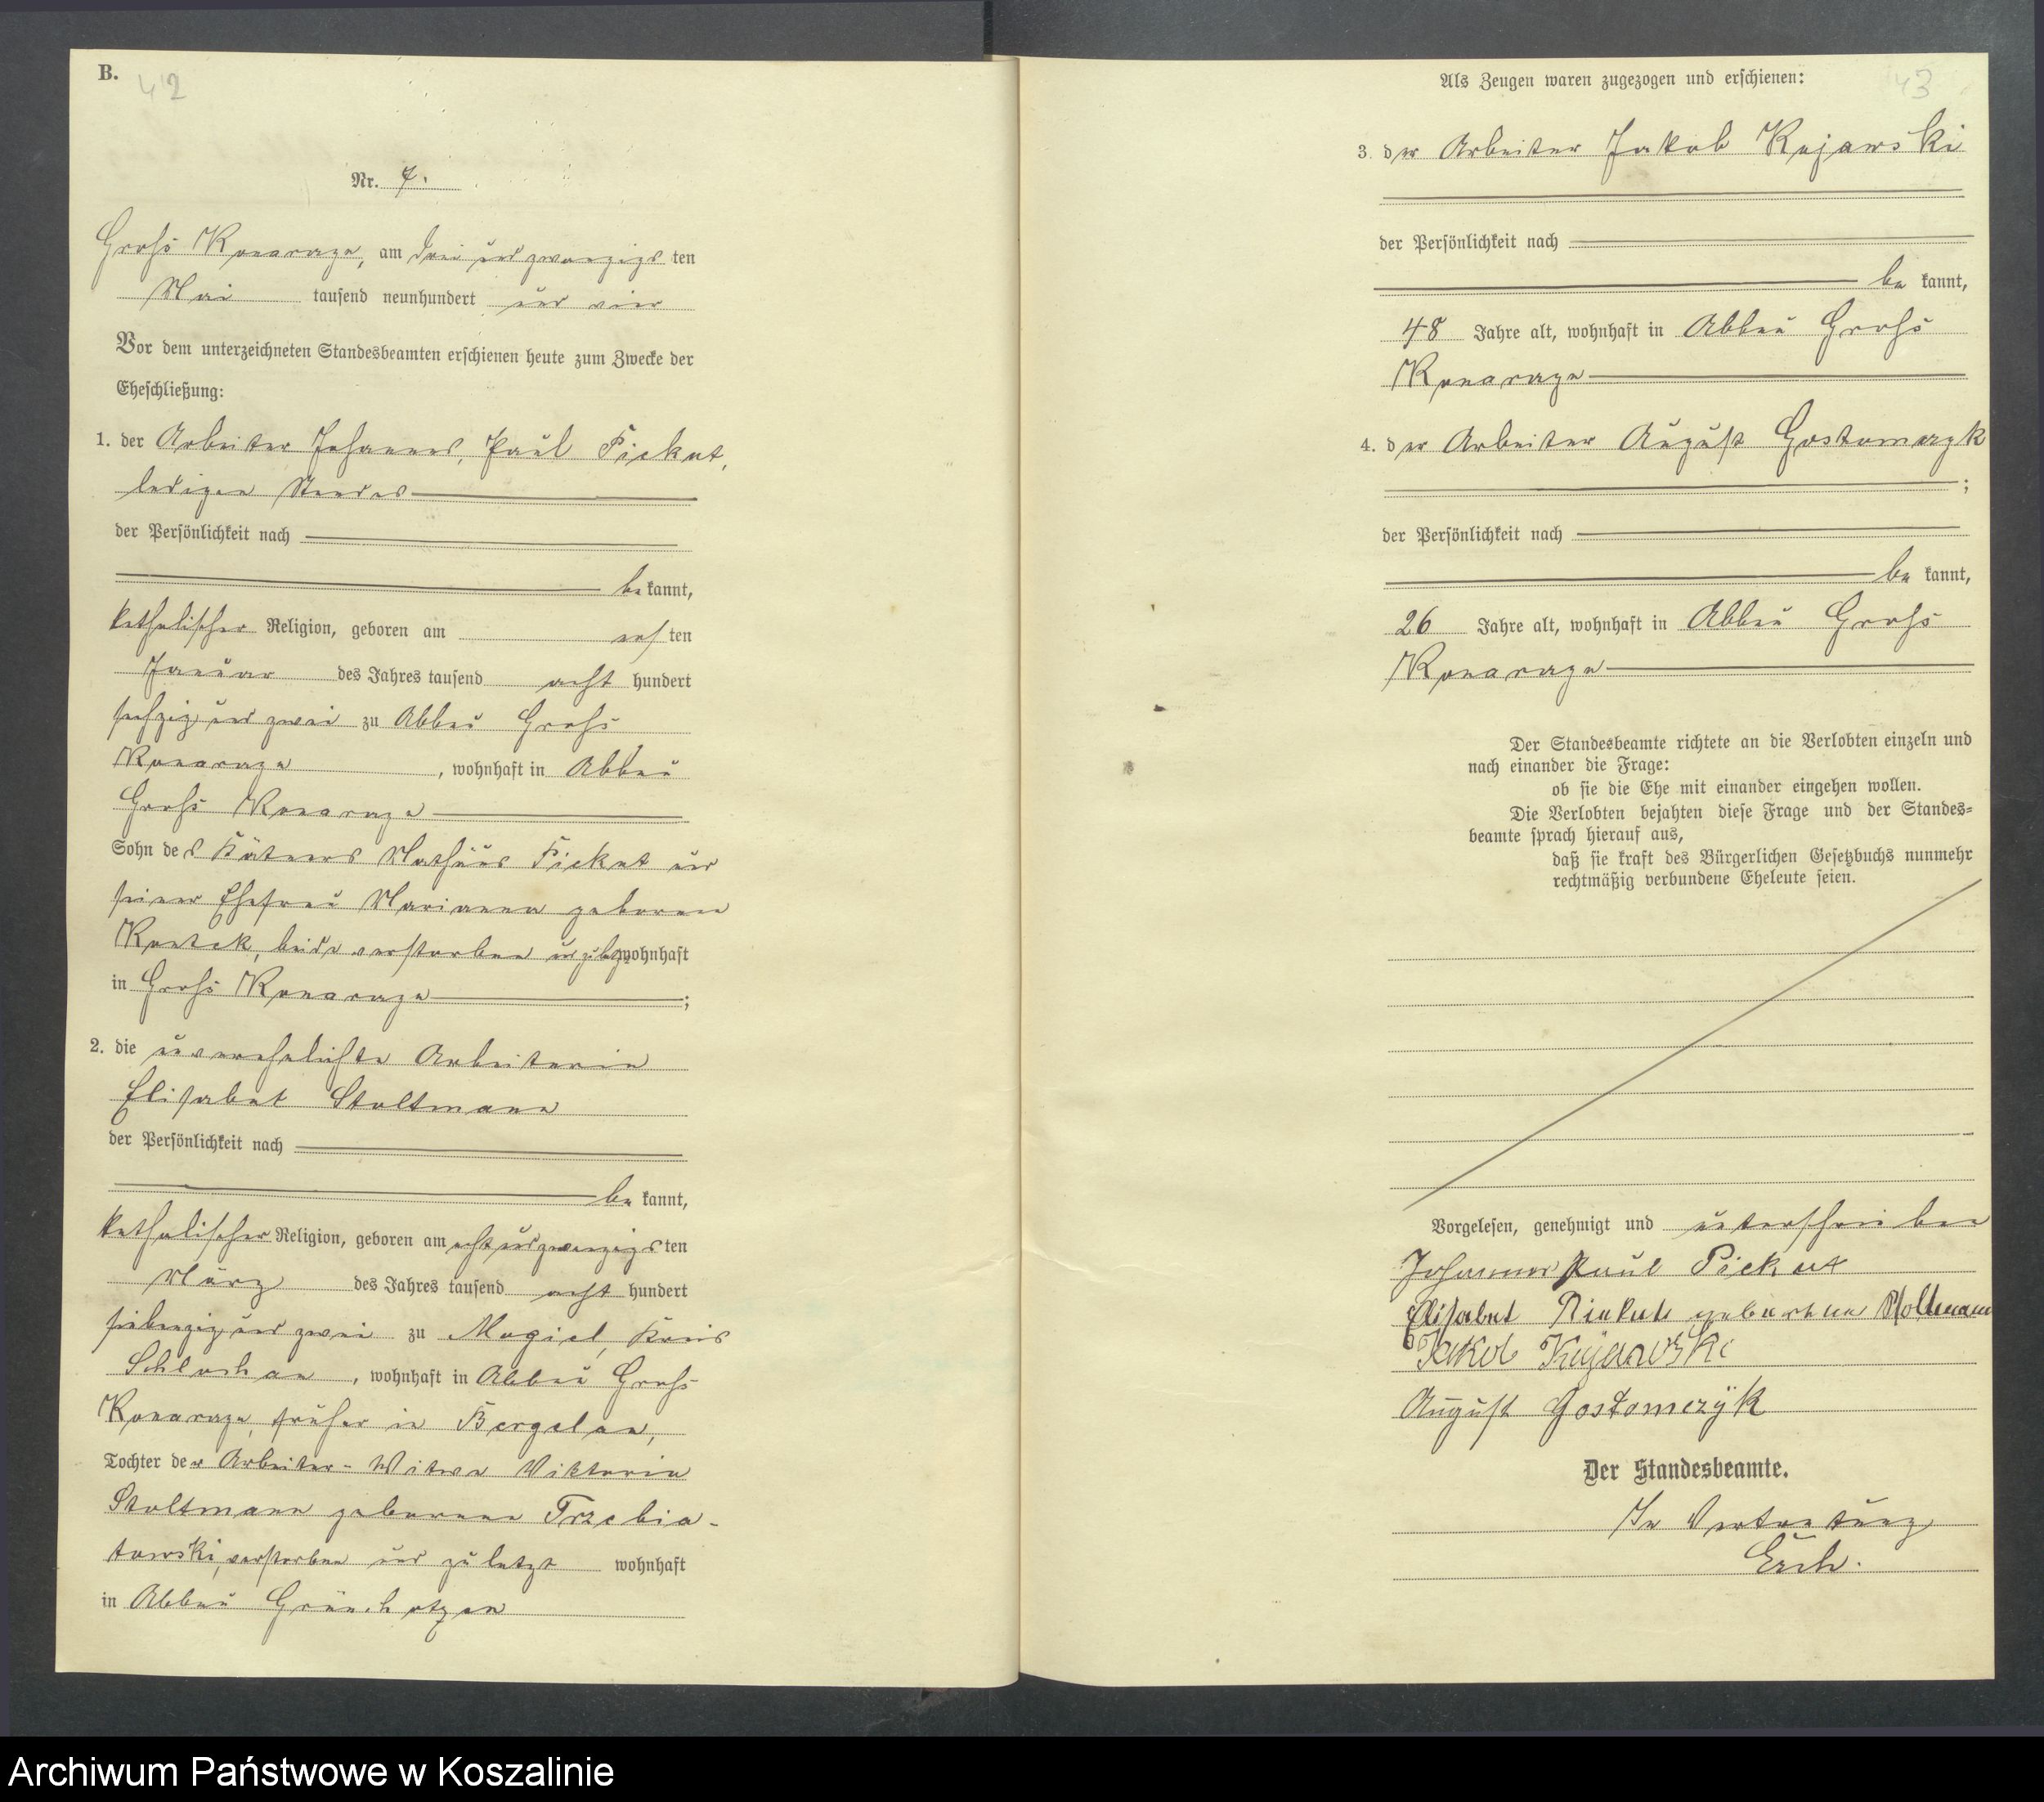 B.
42
Nr. 7.
Groß Konarzyn, am drei und zwanzigsten
Mai tausend neunhundert und vier
Vor dem unterzeichneten Standesbeamten erschienen heute zum Zwecke der
Eheschließung:
1. der Arbeiter Johannes, Paul Piekut,
ledigen Standes
der Persönlichkeit nach
be kannt,
katholischer Religion, geboren am ersten
Januar des Jahres tausend acht hundert
sechzig und zwei zu Abbau Groß
Konarzyn, wohnhaft in Abbau
Groß Konarzyn
Sohn des Kätners Mathäus Piekut und
seiner Ehefrau Marianna geborenen
beide verstorben und zuletzt wohnhaft
in Groß Konarzyn;
2. die unverehelichte Arbeiterin
Elisabet Stoltmann
der Persönlichkeit nach
be kannt,
katholischer Religion, geboren am acht und zwanzigsten
März des Jahres tausend acht hundert
siebenzig und zwei zu Mogiel, Kreis
Schlochau, wohnhaft in Abbau Groß
Konarzyn, früher in Bergelau,
Tochter der Arbeiter-Witwe Viktoria
Stoltmann geborene Trzebia-
towski, verstorben und zuletzt wohnhaft
in Abbau Grünchotzen
Als Zeugen waren zugezogen und erschienen:
43
3. der Arbeiter Jakob Kujawski
der Persönlichkeit nach
be kannt,
48 Jahre alt, wohnhaft in Abbau Groß
Konarzyn
4. der Arbeiter August Gostomczyk
;
der Persönlichkeit nach
be kannt,
26 Jahre alt, wohnhaft in Abbau Groß
Konarzyn
Der Standesbeamte richtete an die Verlobten einzeln und
nach einander die Frage:
ob sie die Ehe mit einander eingehen wollen.
Die Verlobten bejahten diese Frage und der Standes-
beamte sprach hierauf aus,
daß sie kraft des Bürgerlichen Gesetzbuchs nunmehr
rechtmäßig verbundene Eheleute seien.
Vorgelesen, genehmigt und unterschrieben
Johannes Paul Piekut
Elisabet Piekut geborene Stoltmann
Jakob Kujawski
August Gostomczyk
Der Standesbeamte.
In Vertretung
Archiwum Państwowe w Koszalinie